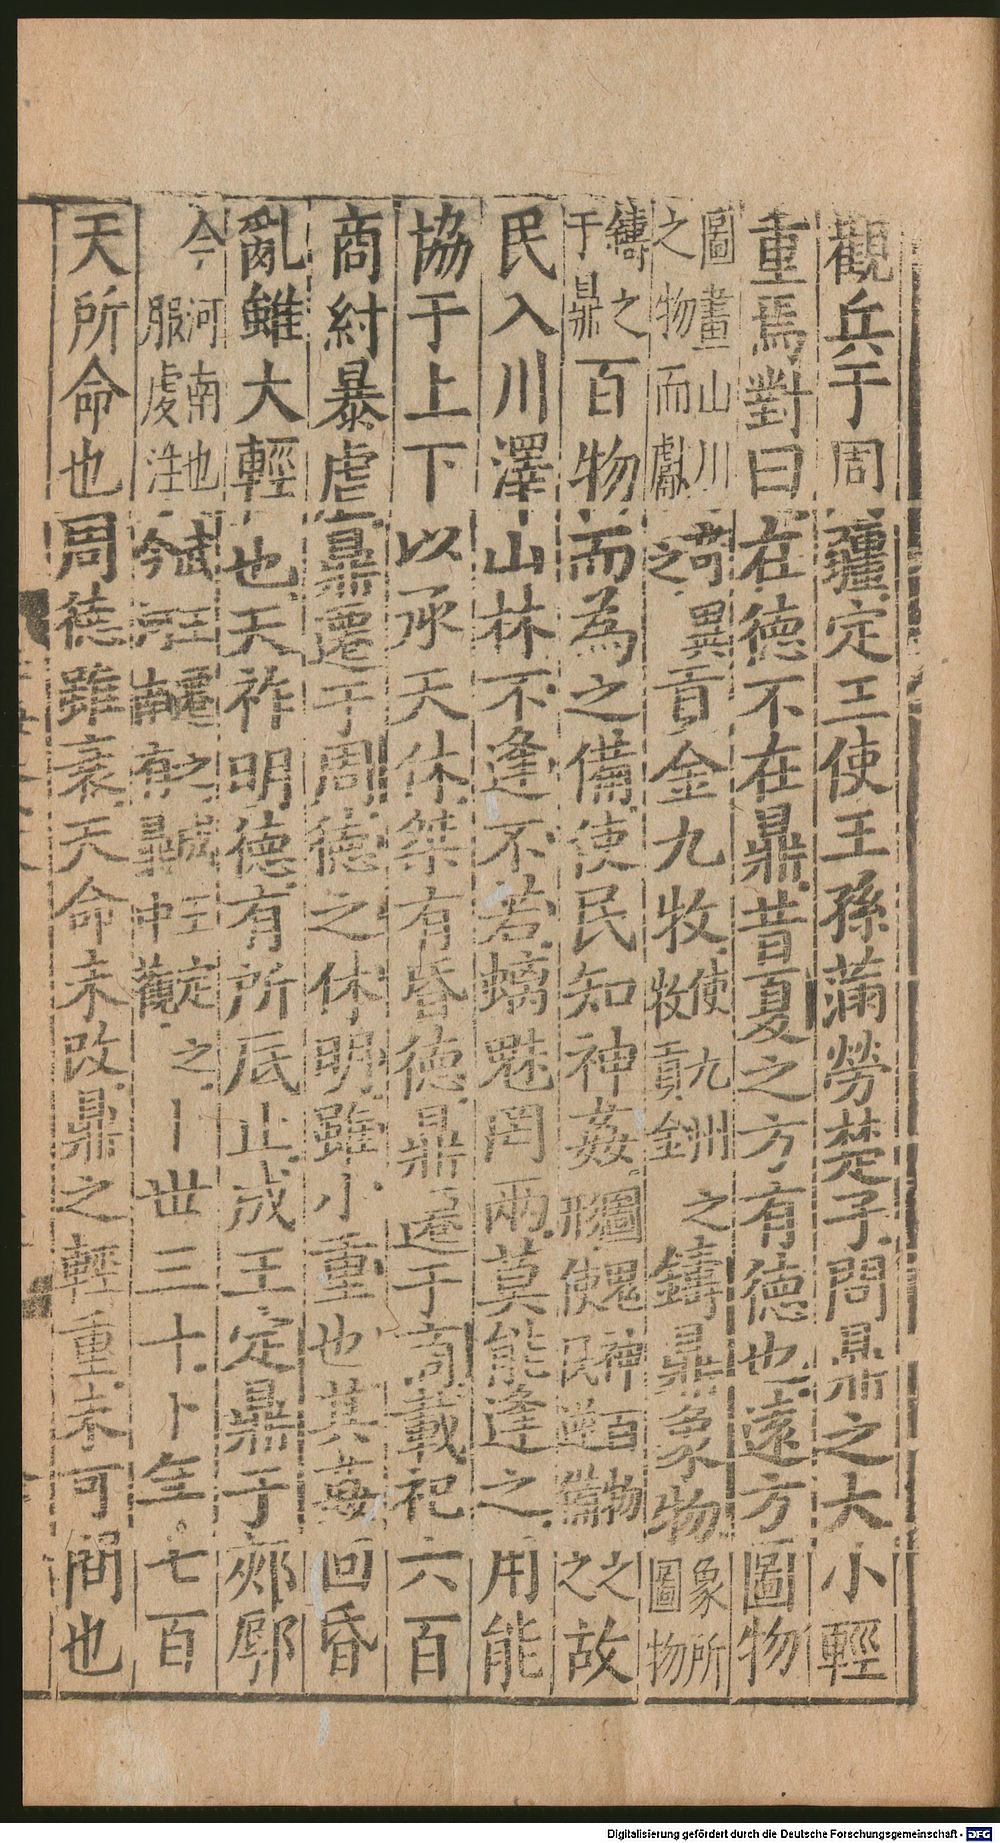 觀兵于周疆定王使王孫滿勞楚子問鼎之大小輕
重焉對曰在德不在鼎昔夏之方有德也遠方圖物
圖畫山川奇異
之物而獻之
貢金九牧
使九州之
牧貢金
鑄鼎象物
象所
圖物
鑄之
于鼎
百物而為之備使民知神姦
圖鬼神百物之
形使民逆備之
故
民入川澤山林不逢不若螭魅罔兩莫能逢之用能
協于上下以承天休桀有昏德鼎遷于商載祀六百
商紂暴虐鼎遷于周德之休明雖小重也其姦回昏
亂雖大輕也天祚明德有所厎止成王定鼎于郟鄏
今河南也武王遷之成王定之
服虔注今河南有鼎中觀
卜丗三十卜年七百
天所命也周德雖衰天命未改鼎之輕重未可問也
Digitalisierung gefördert durch die Deutsche Forschungsgemeinschaft - DFG